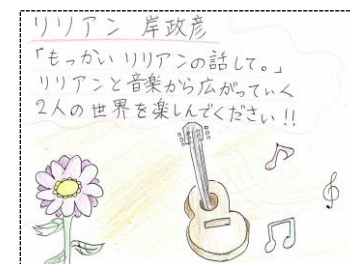 リリアン 岸政彦
「もっかい リリアンの話して。」
リリアンと音楽から広がっていく
2人の世界を楽しんでください!!